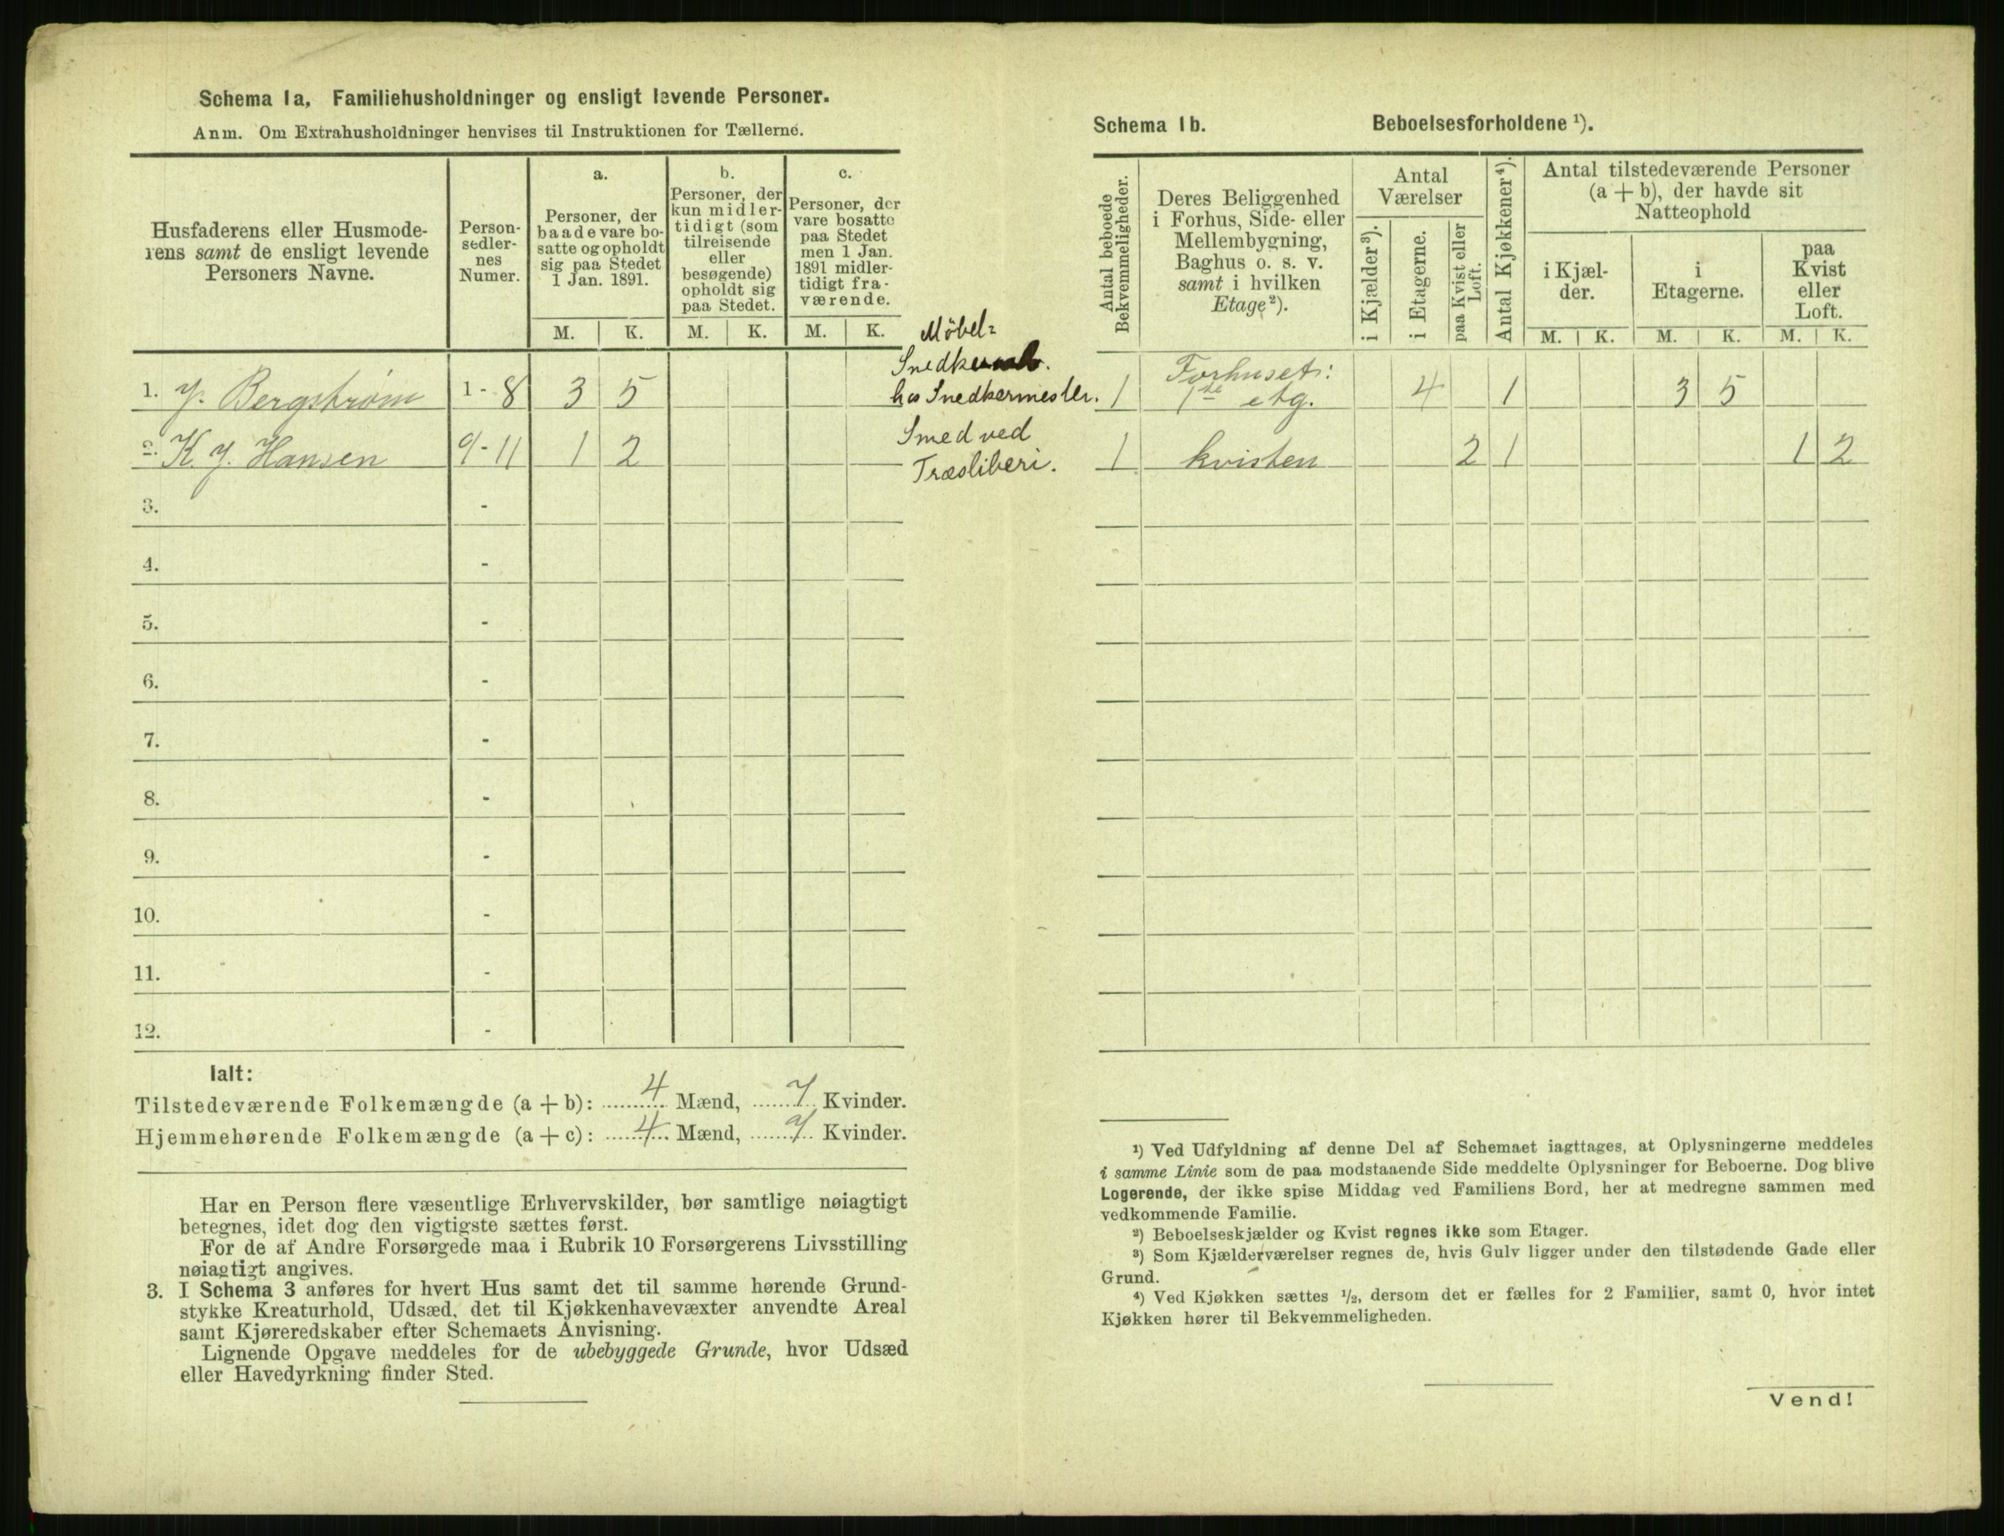 Schema 1a, Familiehusholdninger og ensligt levende Personer.
Anm. Om Extrahusholdninger henvises til Instruktionen for Tællerne.
Husfaderens eller Husmode-
rens samt de ensligt levende
Personers Navne.
Person-
sedler-
nes
Numer.
a.
Personer, der
baade vare bo-
satte og opholdt
sig paa Stedet
1 Jan. 1891.
b.
Personer, der
kun midler-
tidigt (som
tilreisende
eller
besøgende)
opholdt sig
paa Stedet.
c.
Personer, der
vare bosatte
paa Stedet
men 1 Jan.
1891 midler-
tidigt fra-
værende.
M. K. M. K. M. K.
1. J. Bergstrøm 1 - 8 3 5
2. K. J. Hansen 9 - 11 1 2
3. -
4. -
5. -
6. -
7. -
8. -
9. -
10. -
11. -
12. -
Møbel-
Snedker
hos Snedkermester.
Smed ved
Træsliberi.
Ialt:
Tilstedeværende Folkemængde (a + b): 4 Mænd, 7 Kvinder.
Hjemmehørende Folkemængde (a + c): 4 Mænd, 7 Kvinder.
Har en Person flere væsentlige Erhvervskilder, bør samtlige nøiagtigt
betegnes, idet dog den vigtigste sættes først.
For de af Andre Forsørgede maa i Rubrik 10 Forsørgerens Livsstilling
nøiagtigt angives.
3. I Schema 3 anføres for hvert Hus samt det til samme hørende Grund-
stykke Kreaturhold, Udsæd, det til Kjøkkenhavevæxter anvendte Areal
samt Kjøreredskaber efter Schemaets Anvisning.
Lignende Opgave meddeles for de ubebyggede Grunde, hvor Udsæd
eller Havedyrkning finder Sted.
Schema 1b. Beboelsesforholdene ¹).
Antal beboede
Bekvemmeligheder.
Deres Beliggenhed
i Forhus, Side- eller
Mellembygning,
Baghus o. s. v.
samt i hvilken
Etage²).
Antal
Værelser
i Kjælder³).
i Etagerne.
paa Kvist eller
Loft.
Antal Kjøkkener⁴).
Antal tilstedeværende Personer
(a + b), der havde sit
Natteophold
i Kjæl-
der.
i
Etagerne.
paa
Kvist
eller
Loft.
M. K. M. K. M. K.
1 Forhuset: 1ste etg. 4 1 3 5
1 kvisten 2 1 1 2
¹) Ved Udfyldning af denne Del af Schemaet iagttages, at Oplysningerne meddeles
i samme Linie som de paa modstaaende Side meddelte Oplysninger for Beboerne. Dog blive
Logerende, der ikke spise Middag ved Familiens Bord, her at medregne sammen med
vedkommende Familie.
²) Beboelseskjælder og Kvist regnes ikke som Etager.
³) Som Kjælderværelser regnes de, hvis Gulv ligger under den tilstødende Gade eller
Grund.
⁴) Ved Kjøkken sættes ½, dersom det er fælles for 2 Familier, samt 0, hvor intet
Kjøkken hører til Bekvemmeligheden.
Vend!